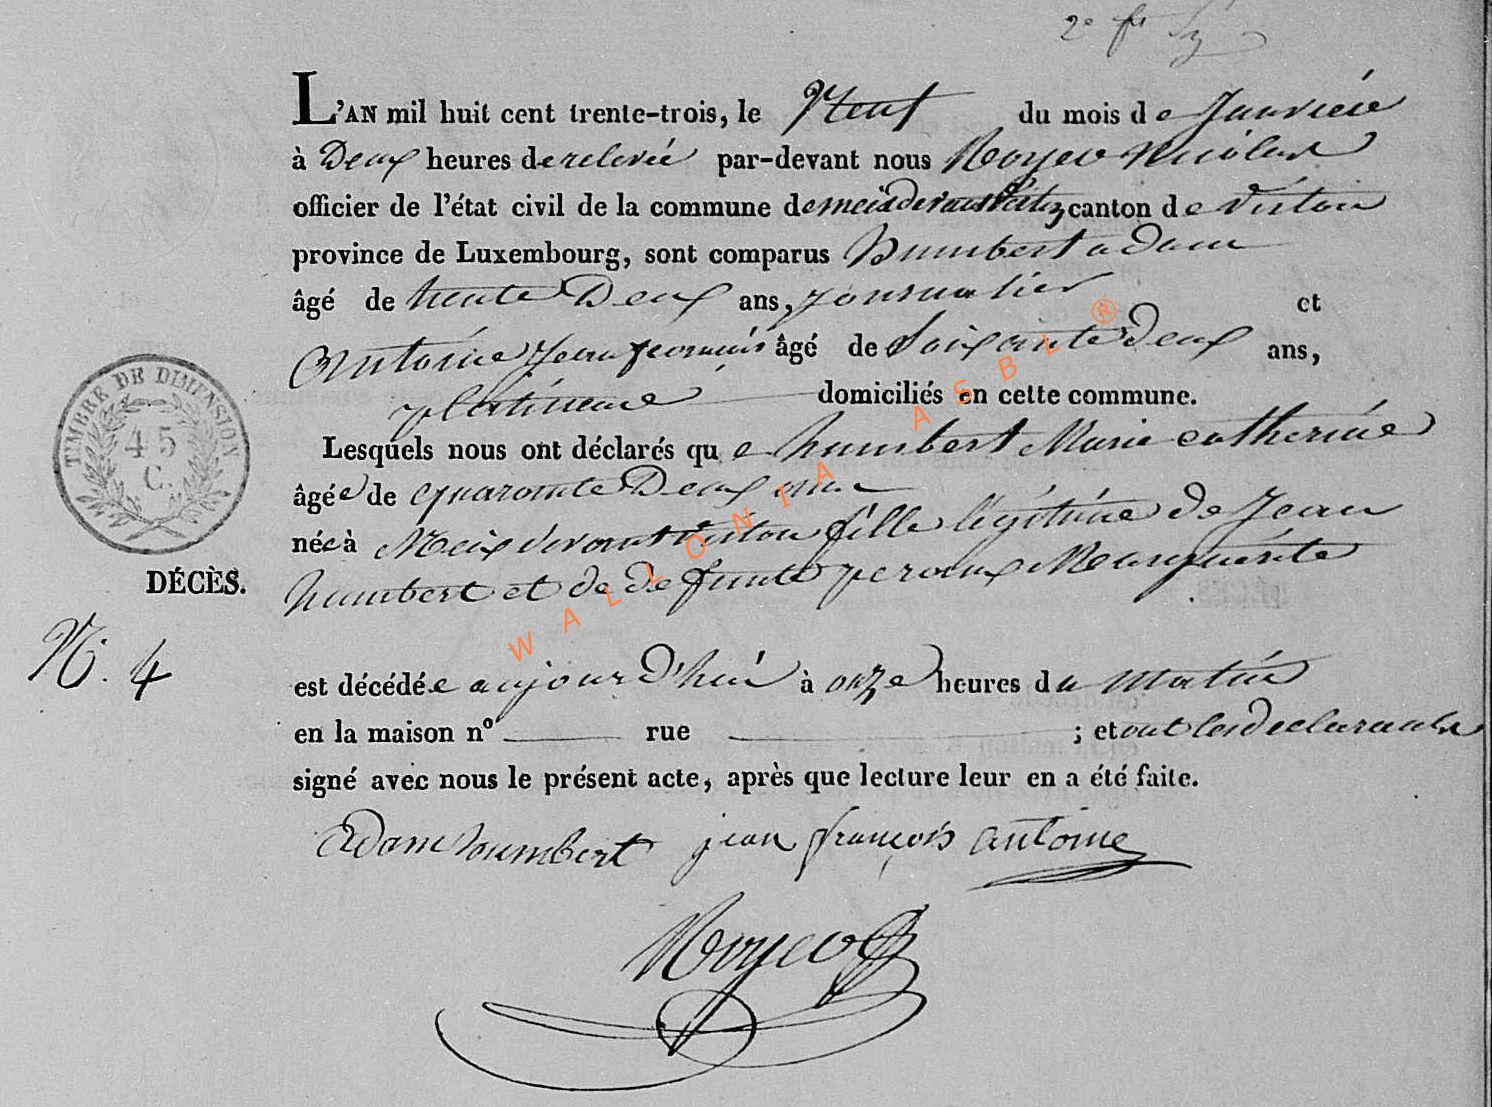 2e
L'AN mil huit cent trente-trois, le Neuf du mois de Janviér
à Deux heures de relevée par-devant nous Noyeo Nicolas
officier de l'état civil de la commune de meix devant virton canton de virton
province de Luxembourg, sont comparus humbert adam
âgé de trente Deux ans, journalier et
Antoine Jean francois âgé de Soixante Deux ans,
domiciliés en cette commune.
Lesquels nous ont déclarés que humbert Marie catherine
âgée de quarante Deux ans
née à Meix devant virton fille légitime de Jean
humbert et de defunte Marguerite
TIMBRE DE DIMENSION
45
C.
DÉCÈS.
N. 4
est décédée aujourd'hui à onze heures du matin
en la maison no rue ; et ont les declarants
signé avec nous le présent acte, après que lecture leur en a été faite.
adam humbert jean françois antoine
Noyeo
WALLONIA ASBL ®